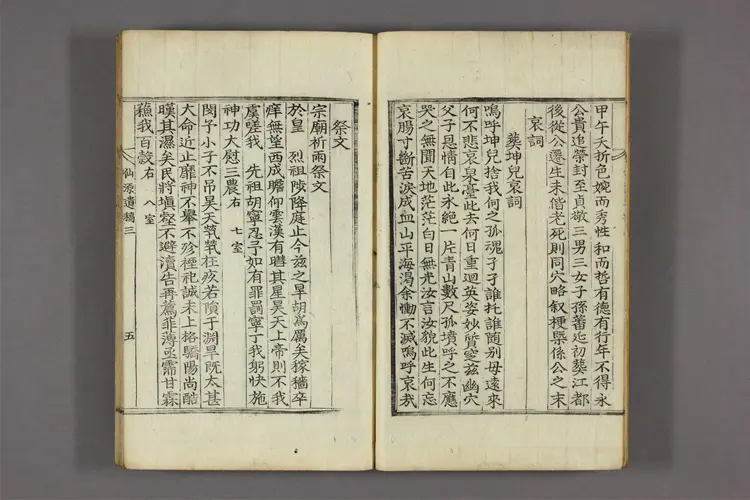 甲午夭折色婉而秀性和而哲有德有行年不得永
公貴追榮封至貞敬三男三女子孫蕃迄初葬江都
後從公遷生未偕老死則同穴略叙梗槩係公之末
哀詞
葬坤兒哀詞
嗚呼坤兒捨我何之孤魂孑孑誰托誰随别毋遠來
何不悲哀泉臺此去何日重迴英姿妙質變玆幽穴
父子恩情自此永絶一片青山數尺孤墳呼之不應
哭之無聞天地茫茫白日無光汝言汝貌此生何忘
哀腸寸斷苦淚成血山平海渴余慟不滅嗚呼哀哉
祭文
宗廟祈雨祭文
於皇 烈祖陟降庭止今玆之旱胡爲厲矣稼穡卒
痒無望西成瞻仰雲漢有嘒其星昊天上帝則不我
虞嗟我 先祖胡寧忍予如有罪罰寧丁我躬快施
神功大慰三農右 七室
閔予小子不吊昊天煢煢在疚若隕于淵旱既太甚
大命近止靡神不舉不殄禋祀誠未上格驕陽尚酷
暵其濕矣民將塡壑不避瀆告再薦菲薄亟霈甘霖
蘓我百糓右 八室
仙源遺稿三 五